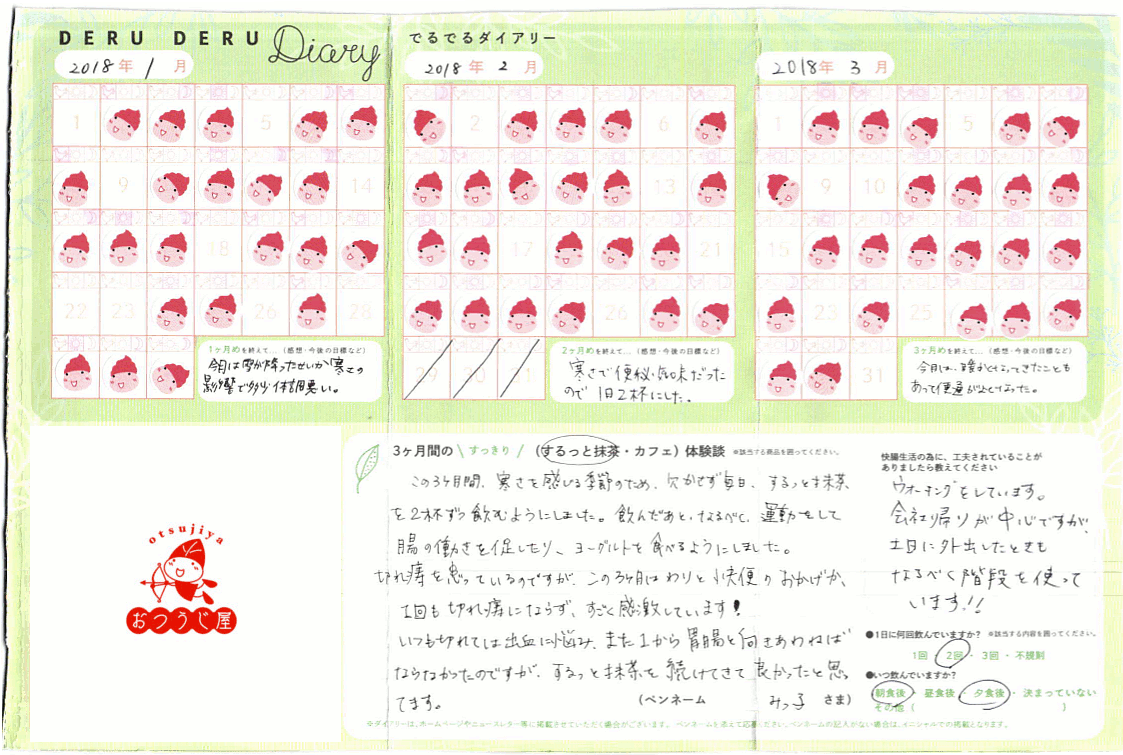 DERU DERU Diary
でるでるダイアリー
2018年 1月
2018年 2月
2018年 3月
1 5
9 14
18
22 23 26 28
2 6
13
17 21
26
29 30 31
1 5
9 10
15
23 25
31
1ヶ月めを終えて… (感想・今後の目標など)
今月は雪が降ったせいか寒さの
影響で多少体調悪い。
2ヶ月めを終えて… (感想・今後の目標など)
寒さで便秘気味だった
ので1日2杯にした。
3ヶ月めを終えて… (感想・今後の目標など)
今月は、暖かくなってきたことも
あって便通がよくなった。
otsujiya
おつうじ屋
3ヶ月間の \ すっきり / (するっと抹茶・カフェ) 体験談 ※該当する商品を囲ってください。
この3ヶ月間、寒さを感じる季節のため、欠かせず毎日、するっと抹茶
を2杯ずつ飲むようにしました。飲んだあと、なるべく、運動をして
腸の働きを促したり、ヨーグルトを食べるようにしました。
切れ痔を患っているのですが、この3ヶ月はわりと快便のおかげか、
1回も切れ痔にならず、すごく感激しています!
いつも切れては出血に悩み、また1から胃腸と向きあわねば
ならなかったのですが、するっと抹茶を続けてきて良かったと思っ
てます。
(ペンネーム みっ子 さま)
快腸生活の為に、工夫されていることが
ありましたら教えてください
ウォーキングをしています。
会社帰りが中心ですが、
土日に外出したときも
なるべく階段を使って
います!!
●1日に何回飲んでいますか? ※該当する内容を囲ってください。
1回・2回・3回・不規則
●いつ飲んでいますか?
朝食後・昼食後・夕食後・決まっていない
その他 ( )
※ダイアリーは、ホームページやニュースレター等に掲載させていただく場合がございます。ペンネームを添えて応募ください。ペンネームの記入がない場合は、イニシャルでの掲載となります。